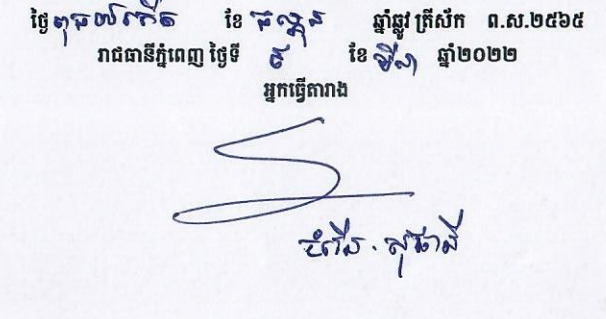 ថ្ងៃពុធ ៧កើត ខែ ផល្គុន ឆ្នាំឆ្លូវ ត្រីស័ក ព.ស.២៥៦៥
រាជធានីភ្នំពេញ ថ្ងៃទី ៩ ខែ មីនា ឆ្នាំ២០២២
អ្នកធ្វើតារាង